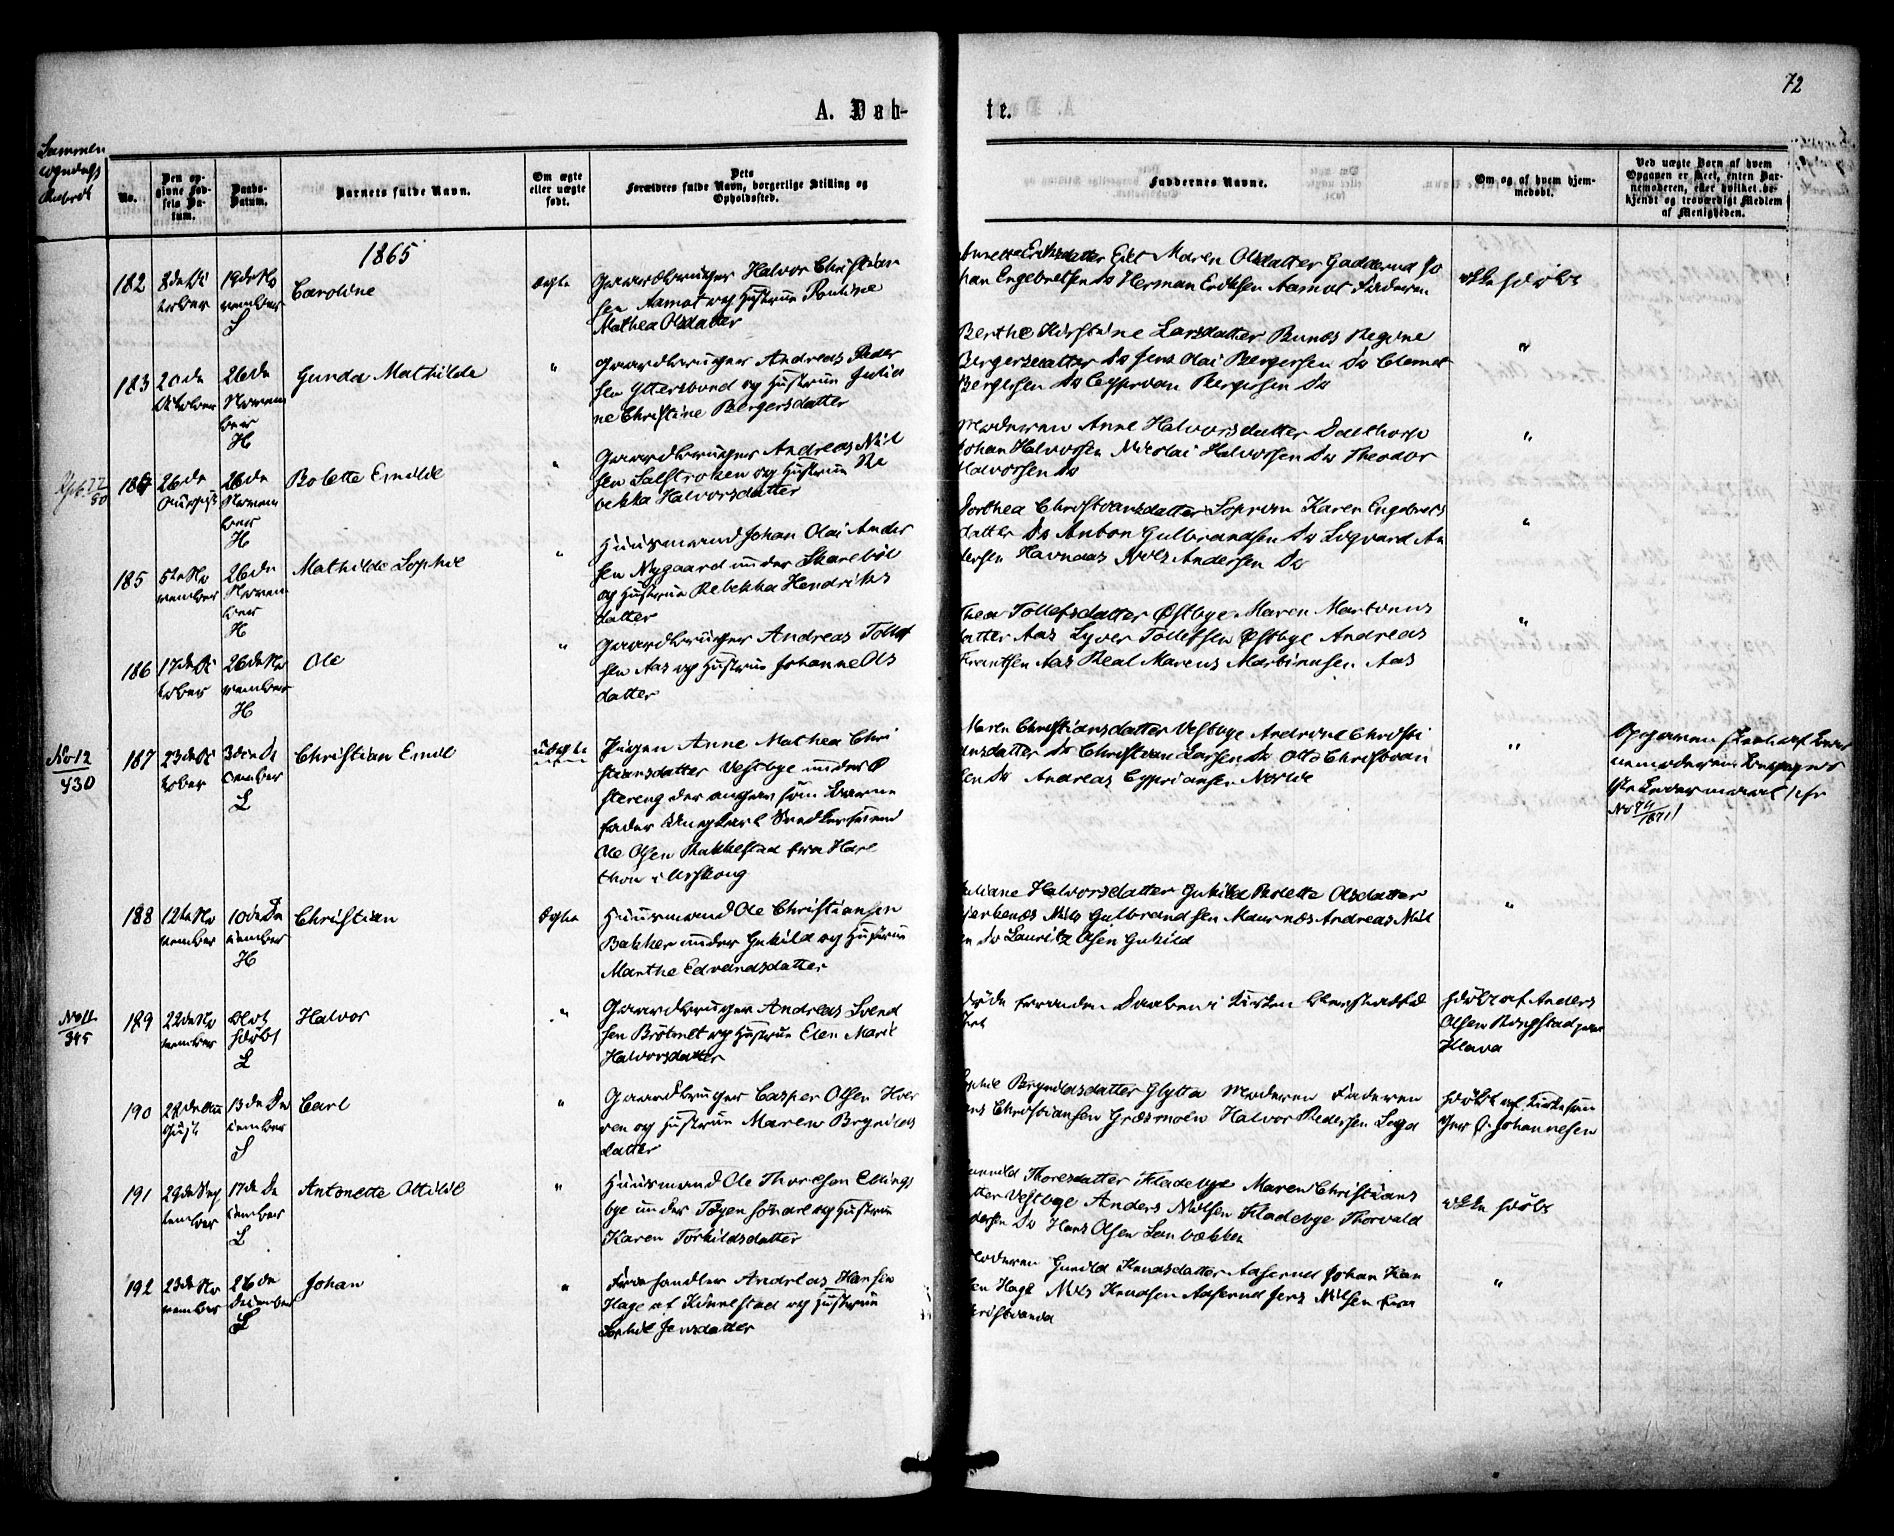 72
A. Døb-
te.
Sammen
No.
Den op-
givne Fød-
sels Da-
tum.
Daabs-
Datum.
Barnets fulde Navn.
Om ægte
eller uægte
født.
Dets
Forældres fulde Navn, borgerlige Stilling og
Opholdssted.
Faddernes Navne.
Om og af hvem hjem-
medøbt.
Ved uægte Børn af hvem
Opgaven er skeet, enten Bar-
nemoderen, eller hvilket be-
kjendt og troværdigt Medlem
af Menigheden.
1865
182
8de Oc
tober
19de No
vember
S
Caroline
Ægte
Gaardbruger Halvor Christian
sen Aamot og Hustrue Pauline
Mathea Olsdatter
Eriksdatter Eiet Maren Olsdatter Gadderud Jo
han Engebretsen Ds Herman Eriksen Aamot Faderen
ikke hjdøbt
183
20de
October
26de
Novem
ber
H
Gunda Mathilde
"
Gaardbruger Andreas Peder
sen Yttersbond og Hustrue Julia
ne Christine Bergersdatter
Berthe Kirstine Larsdatter Bunes Regine
Bergersdatter Ds Jens Olai Bergersen Ds Clemet
Bergersen Ds Cyprian Bergersen Ds
"
184
26de
August
26de
Novem
ber
H
Bolette Emilie
"
Gaardbruger Andreas Niel
sen og Hustrue Re
bekka Halvorsdatter
Moderen Anne Halvorsdatter Daltorp
Johan Halvorsen Nicolai Halvorsen Ds Theodor
Halvorsen Ds
"
185
5te No
vember
26de
Novem
ber
H
Mathilde Sophie
"
Huusmand Johan Olai Ander
sen Nygaard under Skarebøl
og Hustrue Rebekka Hendriks
datter
Dorthea Christiansdatter Sopran Karen Engebrets
datter Ds Anton Gulbrandsen Ds Sigvard An
dersen Havnaas Nils Andersen Ds
"
186
17de Oc
tober
26de No
vember
H
Ole
"
Gaardbruger Andreas Tollef
sen Aas og Hustrue Johanne Ols
datter
Thea Tollefsdatter Østbye Maren Martinus
datter Aas Syver Tollefsen Østbye Andreas
Frantsen Aas Real Marius Martinusen Aas
"
No 12
430
187
23de Oc
tober
3die De
cember
L
Christian Emil
uægte
Pigen Anne Mathea Chri
stiansdatter Vestbye under Ø
stereng der angav som Barne
fader Ungkarl Snedkersvend
Ole Olsen Rakkestad fra Hare
thon i Urskoug
Maren Christiansdatter Vestbye Andrine Christi
ansdatter Ds Christian Larsen Ds Otto Christian
sen Ds Andreas Cyprianssen Nordlie
"
Opgaven skeet af Bar
nemoderen
No 74/1871
188
12te No
vember
10de De
cember
H
Christian
Ægte
Huusmand Ole Christiansen
Bakker under Gukild og Hustrue
Marthe Edvardsdatter
Juliane Halvorsdatter Gukild Bolette Olsdatter
Bjerkenæs Nils Gulbrandsen Maurnæs Andreas Niel
sen Ds Lauritz Olsen Gukild
"
No 12
345
189
22de No
vember
blot
hjdøbt
L
Halvor
"
Gaardbruger Andreas Svend
sen Brølmet og Hustrue Elen Marie
Halvorsdatter
Døde forinden Daaben i Kirken
hjdøbt af Anders
Olsen Ringstad
190
22de Au
gust
13de De
cember
S
Carl
"
Gaardbruger Casper Olsen Hver
ven og Hustrue Maren Brynilds
datter
Sophie Brynildsdatter Glytta Moderen Faderen
Christiansen Græsmoen Halvor Pedersen
hjdøbt af Kirkesan
ger Johannesen
191
29de Sep
tember
17de De
cember
L
Antonette Ottilie
"
Huusmand Ole Thoresen Ellings
bye under og Hustrue
Karen Torkildsdatter
Gunild Thoresdatter Kladebye Maren Christians
datter Vestbye Anders Nielsen Kladebye Thorvald
Ds Hans Olsen Lanbækken
ikke hjdøbt
192
23de No
vember
26de
December
L
Johan
"
Frøhandler Andreas Hansen
Hage af Kinnestad og Hustrue
Sophie Jensdatter
Moderen Gunild Knudsdatter Aaserud Johan Han
sen Hage Nils Knudsen Aaserud Jens Nilsen fra
Christiania
"